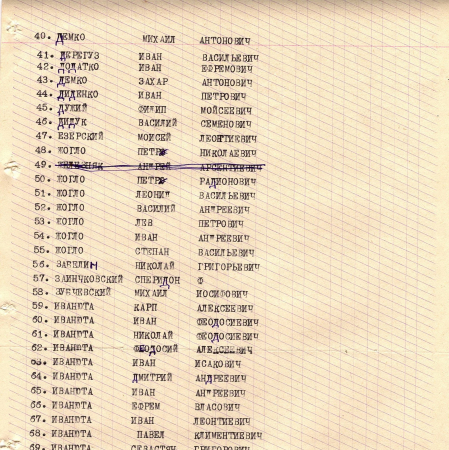 40. ДЕМКО МИХАИЛ АНТОНОВИЧ
41. ДЕРЕГУЗ ИВАН ВАСИЛЬЕВИЧ
42. ДОДАТКО ИВАН ЕФРЕМОВИЧ
43. ДЕМКО ЗАХАР АНТОНОВИЧ
44. ДИДЕНКО ИВАН ПЕТРОВИЧ
45. ДУЖИЙ ФИЛИП МОЙСЕЕВИЧ
46. ДИДУК ВАСИЛИЙ СЕМЕНОВИЧ
47. ЕЗЕРСКИЙ МОИСЕЙ ЛЕОНТИЕВИЧ
48. ЖОГЛО ПЕТР НИКОЛАЕВИЧ
49. АНДРЕЙ АРСЕНТИЕВИЧ
50. ЖОГЛО ПЕТР РАДИОНОВИЧ
51. ЖОГЛО ЛЕОНИД ВАСИЛЬЕВИЧ
52. ЖОГЛО ВАСИЛИЙ АНДРЕЕВИЧ
53. ЖОГЛО ЛЕВ ПЕТРОВИЧ
54. ЖОГЛО ИВАН АНДРЕЕВИЧ
55. ЖОГЛО СТЕПАН ВАСИЛЬЕВИЧ
56. НИКОЛАЙ ГРИГОРЬЕВИЧ
57. ЗАИНЧКОВСКИЙ СПЕРИДОН Ф
58. МИХАИЛ ИОСИФОВИЧ
59. ИВАНЮТА КАРП АЛЕКСЕЕВИЧ
60. ИВАНЮТА ИВАН ФЕОДОСИЕВИЧ
61. ИВАНЮТА НИКОЛАЙ ФЕОДОСИЕВИЧ
62. ИВАНЮТА ФЕОДОСИЙ АЛЕКСЕЕВИЧ
63. ИВАНЮТА ИВАН ИСАКОВИЧ
64. ИВАНЮТА ДМИТРИЙ АНДРЕЕВИЧ
65. ИВАНЮТА ИВАН АНДРЕЕВИЧ
66. ИВАНЮТА ЕФРЕМ ВЛАСОВИЧ
67. ИВАНЮТА ИВАН ЛЕОНТИЕВИЧ
68. ИВАНЮТА ПАВЕЛ КЛИМЕНТИЕВИЧ
69. ИВАНЮТА СЕВАСТЯН ГРИГОРОВИЧ